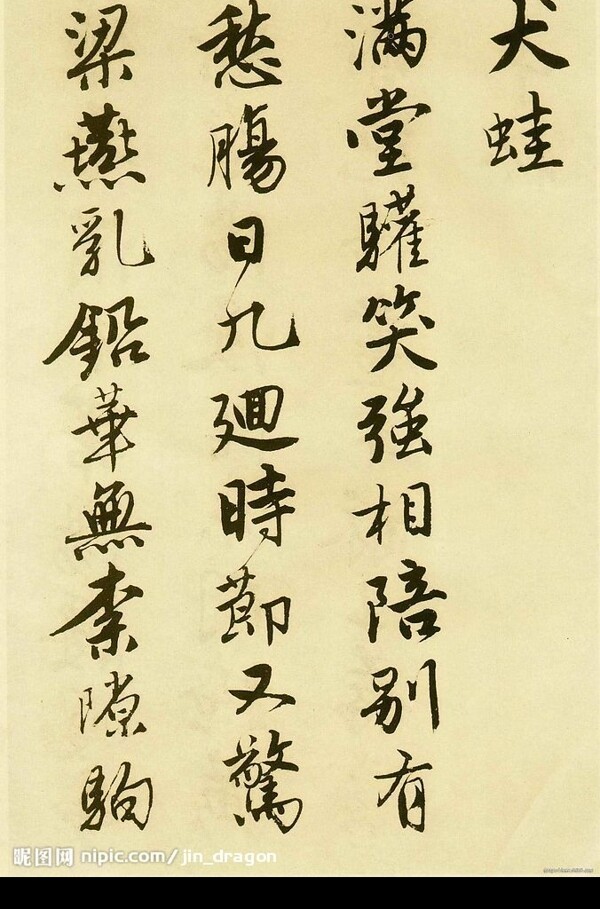 犬蛙
滿堂驩笑強相陪別有
愁腸日九廻時節又驚
梁燕乳鉛華無柰隙駒
昵图网 nipic.com/jin_dragon